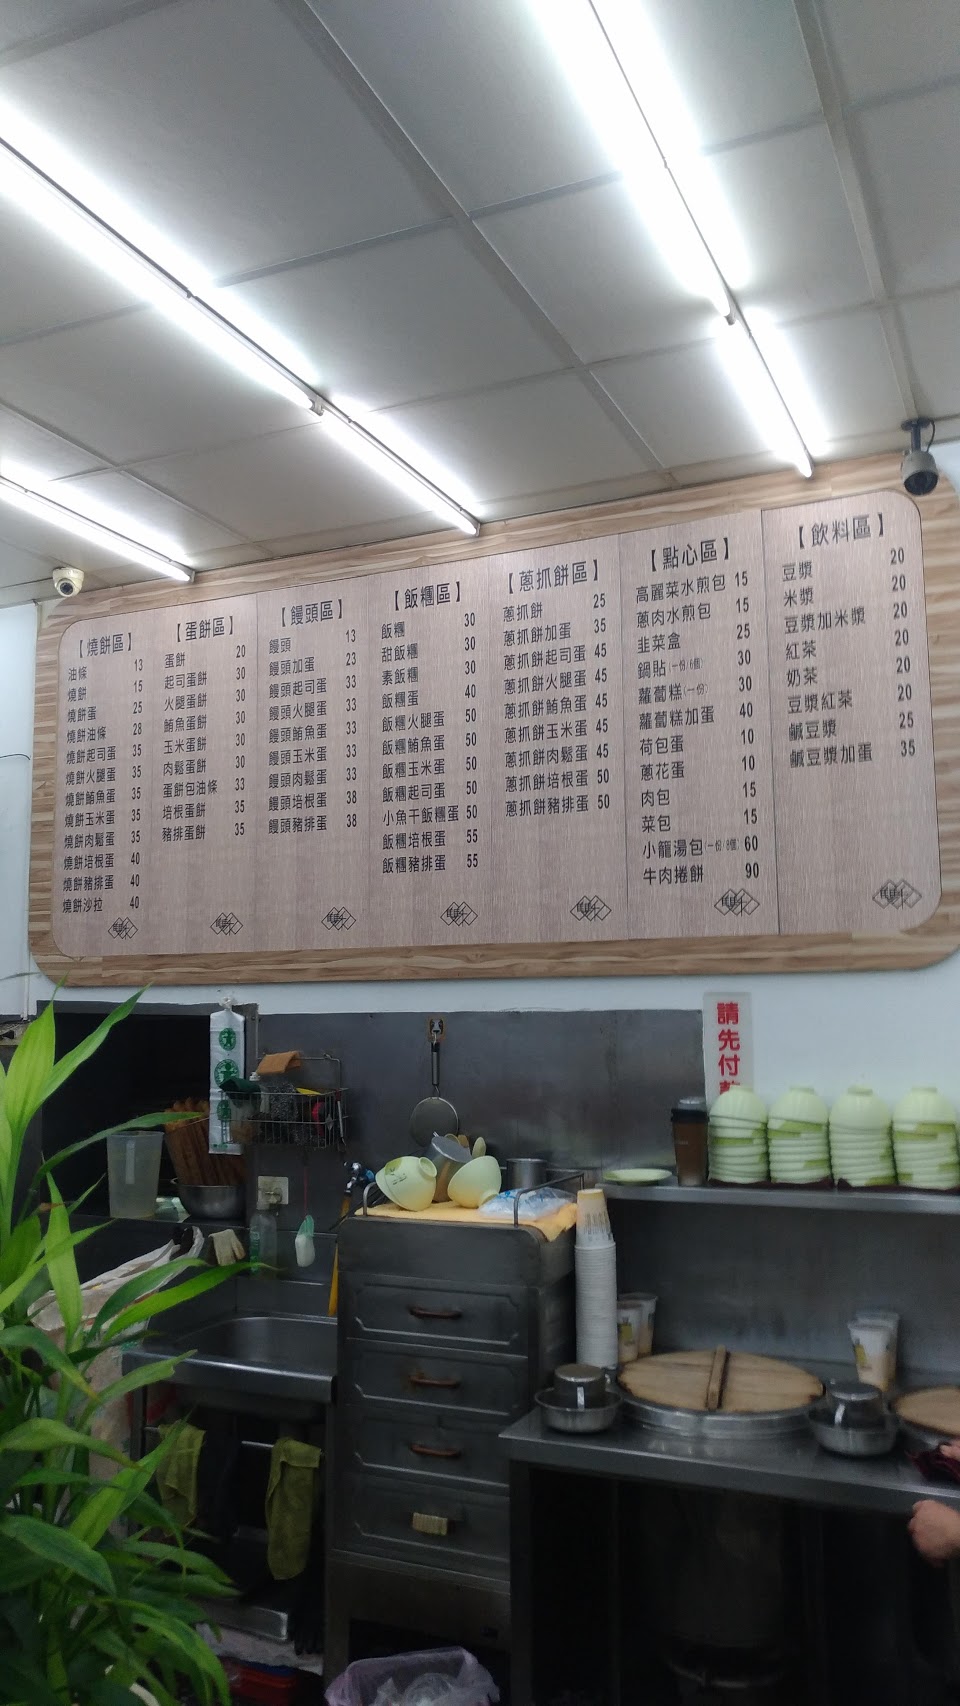 【燒餅區】
油條 13
燒餅 15
燒餅蛋 25
燒餅油條 28
燒餅起司蛋 35
燒餅火腿蛋 35
燒餅鮪魚蛋 35
燒餅玉米蛋 35
燒餅肉鬆蛋 35
燒餅培根蛋 40
燒餅豬排蛋 40
燒餅沙拉 40
【蛋餅區】
蛋餅 20
起司蛋餅 30
火腿蛋餅 30
鮪魚蛋餅 30
玉米蛋餅 30
肉鬆蛋餅 30
蛋餅包油條 33
培根蛋餅 35
豬排蛋餅 35
【饅頭區】
饅頭 13
饅頭加蛋 23
饅頭起司蛋 33
饅頭火腿蛋 33
饅頭鮪魚蛋 33
饅頭玉米蛋 33
饅頭肉鬆蛋 33
饅頭培根蛋 38
饅頭豬排蛋 38
【飯糰區】
飯糰 30
甜飯糰 30
素飯糰 30
飯糰蛋 40
飯糰火腿蛋 50
飯糰鮪魚蛋 50
飯糰玉米蛋 50
飯糰起司蛋 50
小魚干飯糰蛋 50
飯糰培根蛋 55
飯糰豬排蛋 55
【蔥抓餅區】
蔥抓餅 25
蔥抓餅加蛋 35
蔥抓餅起司蛋 45
蔥抓餅火腿蛋 45
蔥抓餅鮪魚蛋 45
蔥抓餅玉米蛋 45
蔥抓餅肉鬆蛋 45
蔥抓餅培根蛋 50
蔥抓餅豬排蛋 50
【點心區】
高麗菜水煎包 15
蔥肉水煎包 15
韭菜盒 25
鍋貼(一份/6個) 30
蘿蔔糕(一份) 30
蘿蔔糕加蛋 40
荷包蛋 10
蔥花蛋 10
肉包 15
菜包 15
小籠湯包(一份/8個) 60
牛肉捲餅 90
【飲料區】
豆漿 20
米漿 20
豆漿加米漿 20
紅茶 20
奶茶 20
豆漿紅茶 20
鹹豆漿 25
鹹豆漿加蛋 35
請先付